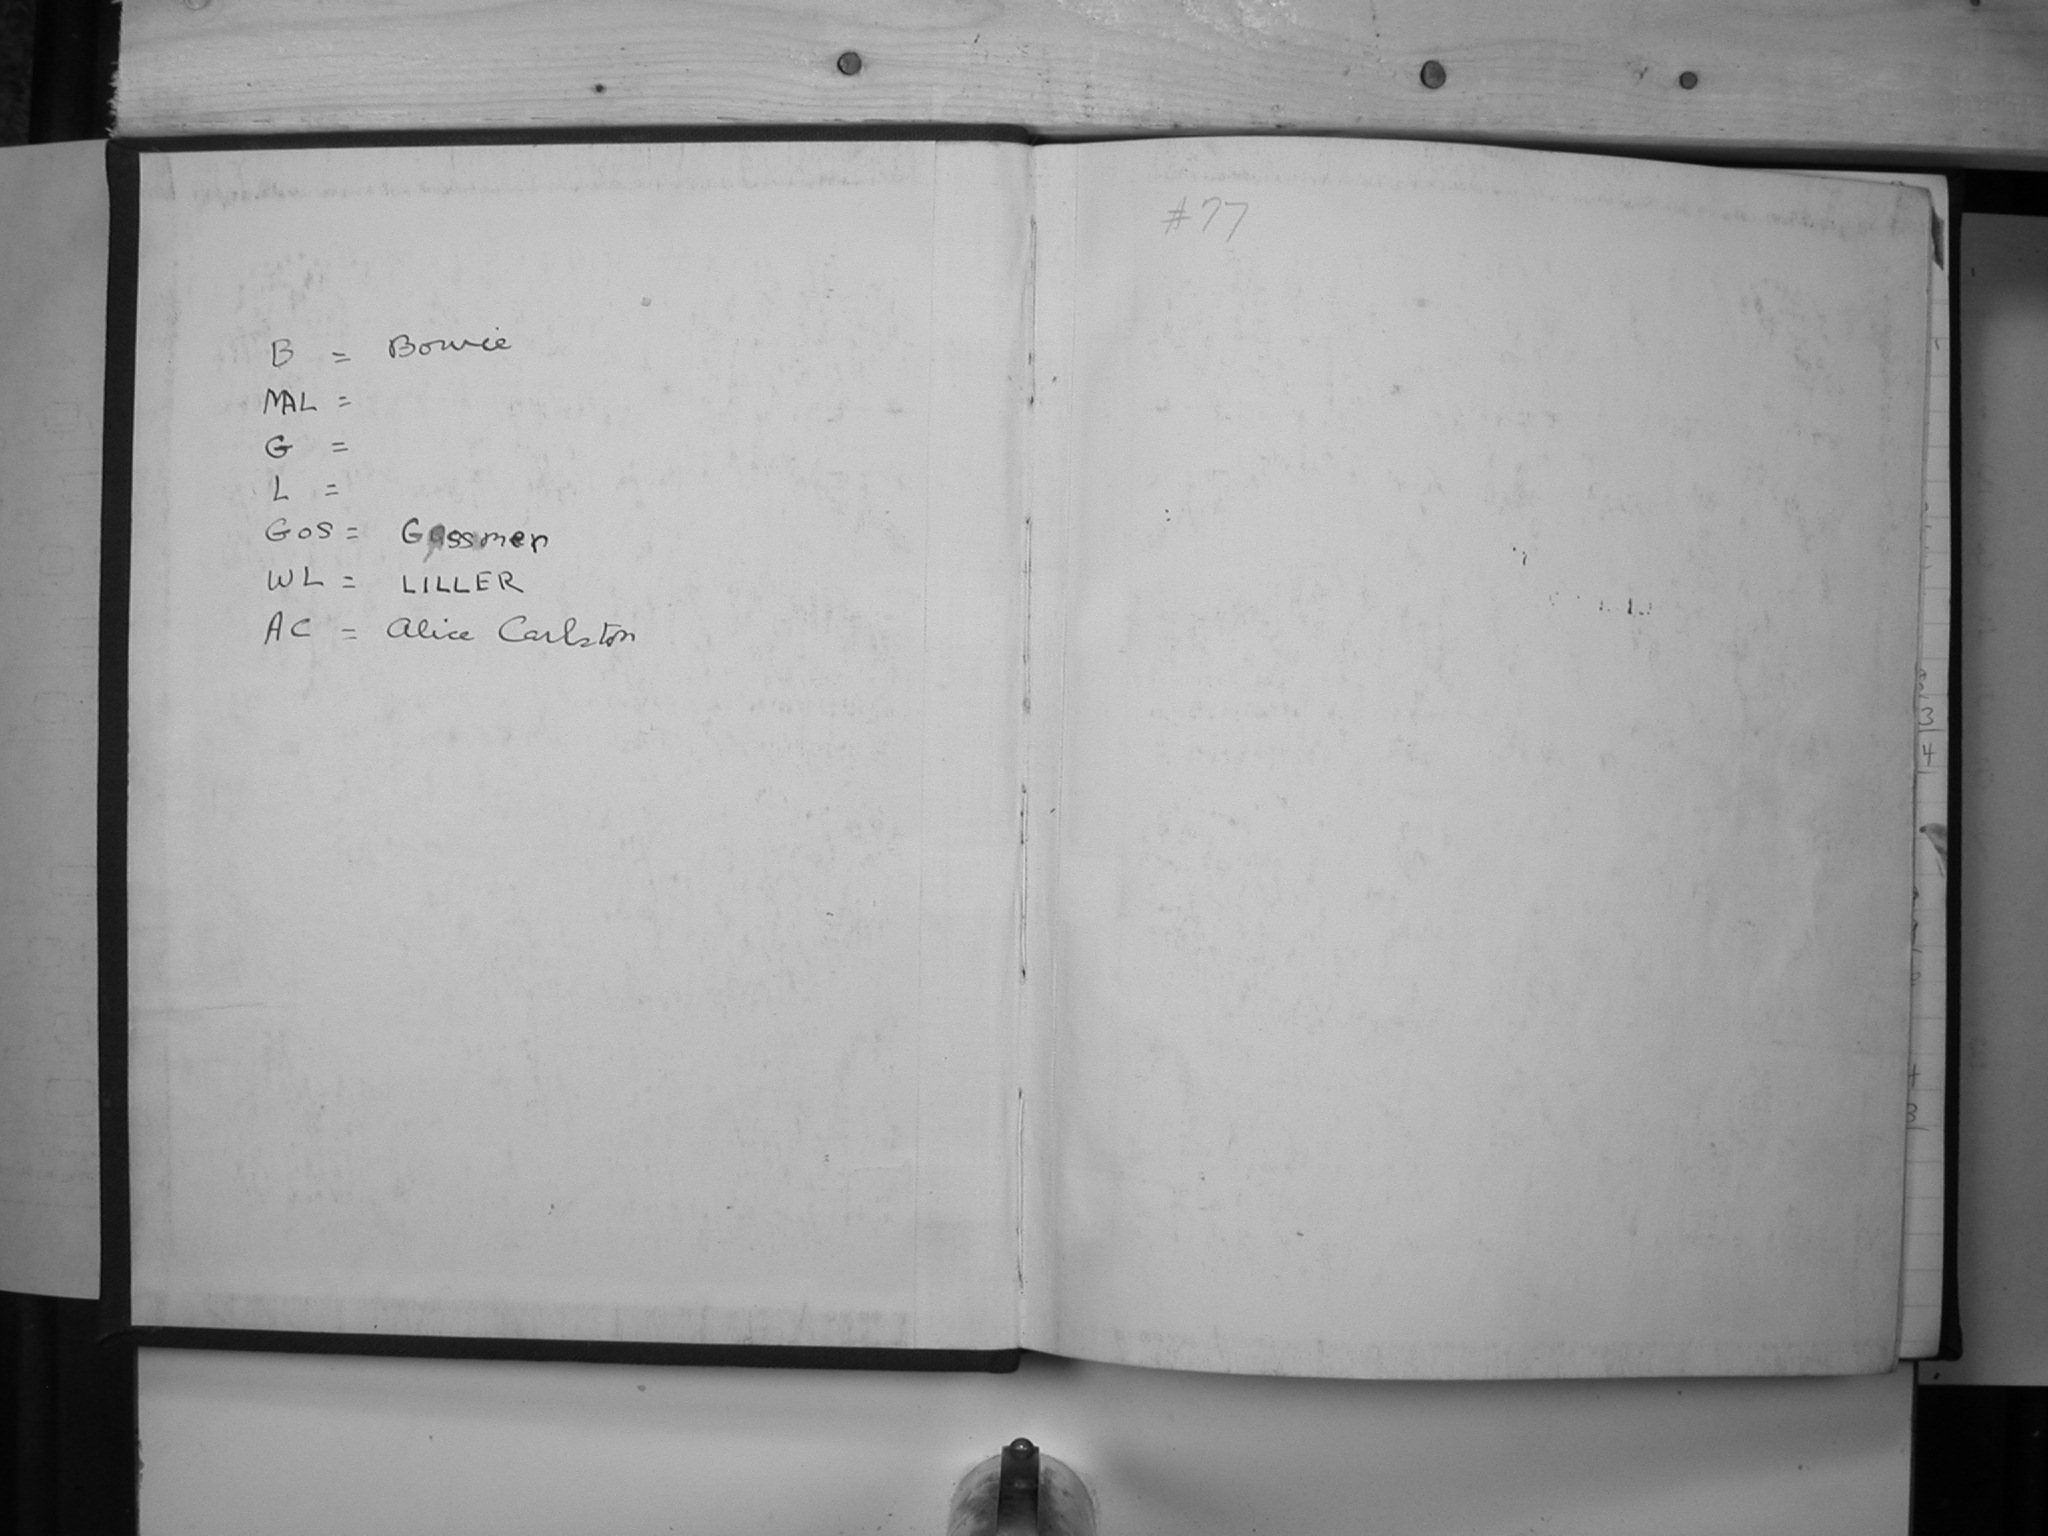 B = Bowie
MAL =
G =
L =
GOS = Gossner
WL = LILLER
AC = Alice Carlston
#77
3
4
4
3